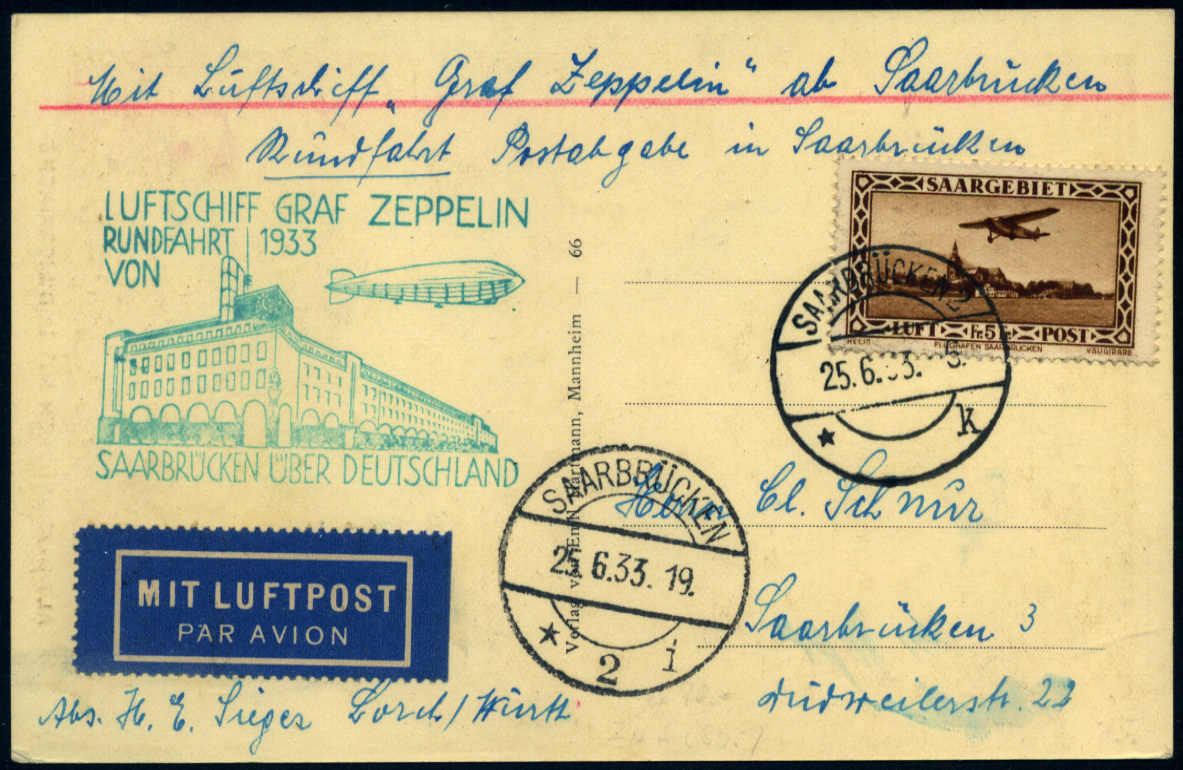 Mit Luftschiff „Graf Zeppelin“ ab Saarbrücken
Rundfahrt Postabgabe in Saarbrücken
LUFTSCHIFF GRAF ZEPPELIN
RUNDFAHRT 1933
VON
SAARBRÜCKEN ÜBER DEUTSCHLAND
SAARGEBIET
LUFT Fr. 5 POST
HELM FLUGHAFEN SAARBRÜCKEN VAUGIRARD
SAARBRÜCKEN 2
25.6.33. -5.
k
Verlag von Hartmann, Mannheim — 66
SAARBRÜCKEN
25.6.33.19.
2 i
Herrn Cl. Schnur
Saarbrücken 3
Dudweilerstr. 22
MIT LUFTPOST
PAR AVION
Abs. H. E. Sieger Lorch/Württ